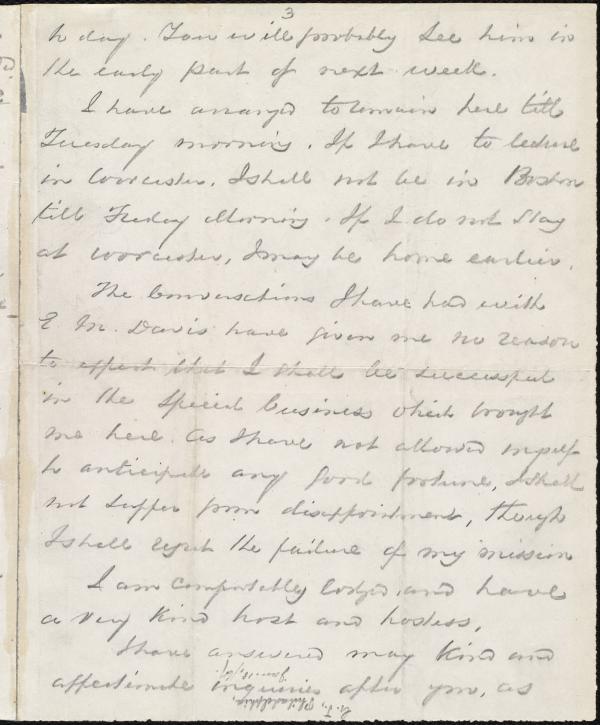 3
to day. You will probably see him in
the early part of next week.
I have arranged to remain here till
Tuesday morning. If I have to lecture
in Worcester, I shall not be in Boston
till Friday Morning. If I do not stay
at Worcester, I may be home earlier.
The Conversations I have had with
E M. Davis have given me no reason
to expect that I shall be successful
in the special business which brought
me here. As I have not allowed myself
to anticipate any good fortune, I shall
not suffer from disappointment, though
I shall regret the failure of my mission
I am comfortably lodged, and have
a very kind host and hostess.
I have answered many kind and
affectionate inquiries after you, as
Philadelphia,